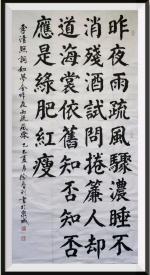 昨夜雨疏風驟濃睡不
消殘酒試問捲簾人却
道海棠依舊知否知否
應是綠肥紅瘦
李清照詞如夢令昨夜雨疏風驟